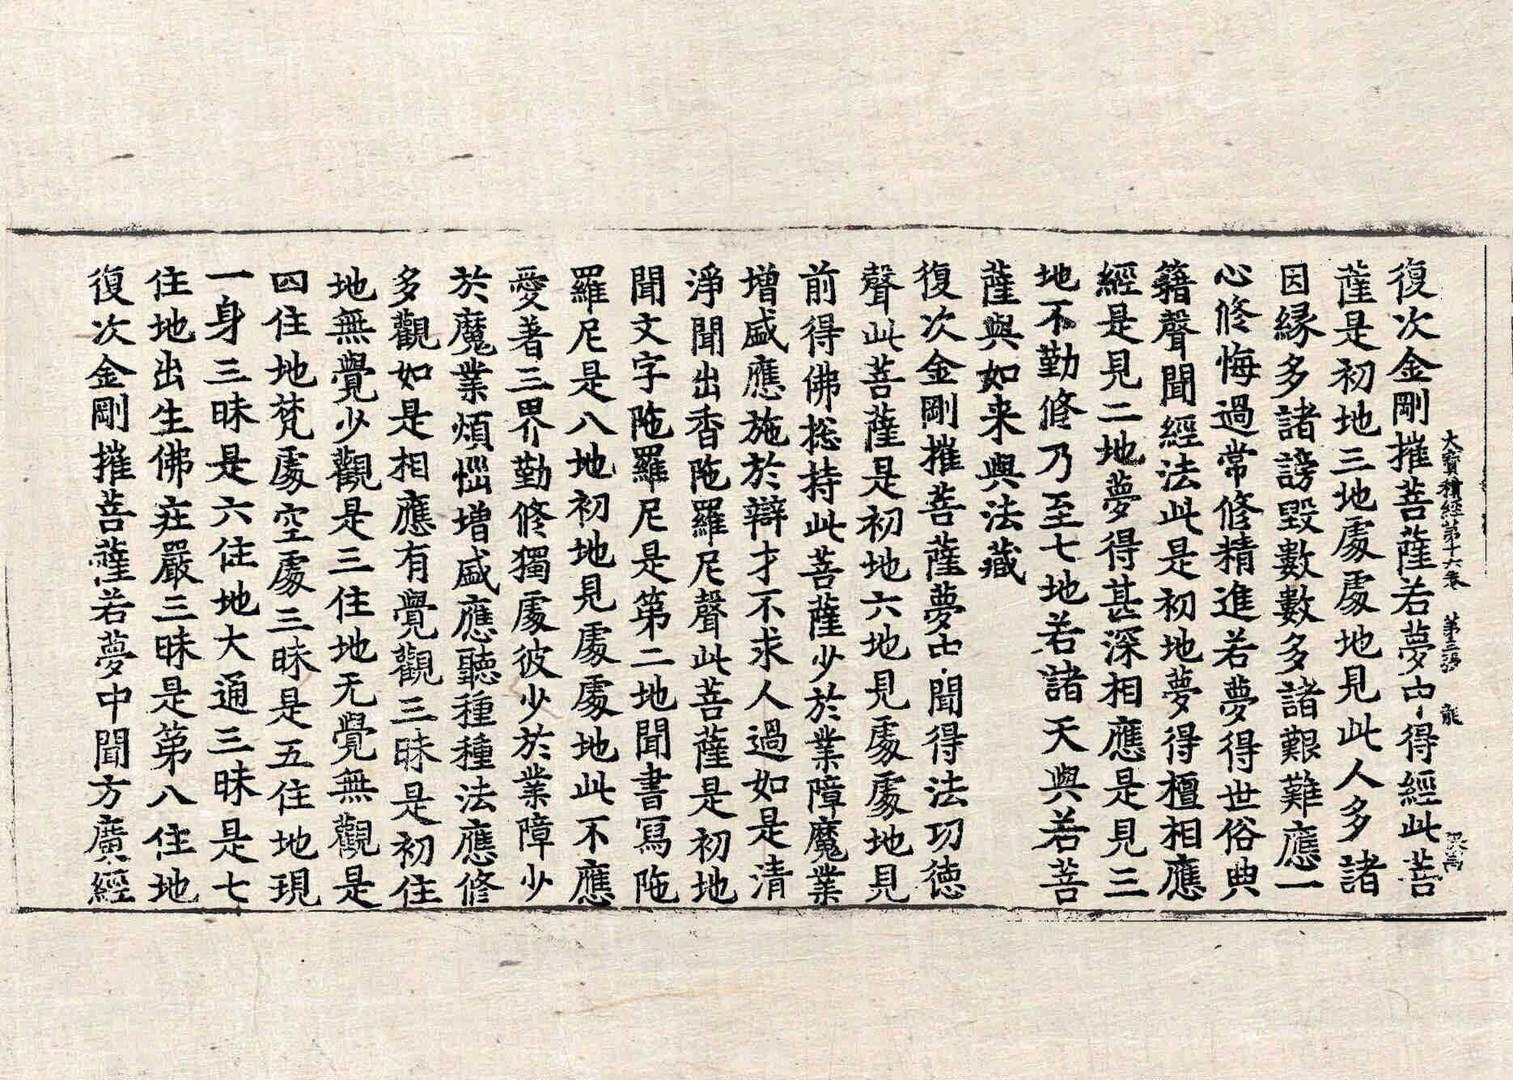 大寶積經第十六卷 第三張 龍
復次金剛摧菩薩若夢中得經此菩
薩是初地三地處處地見此人多諸
因緣多諸謗毀數數多諸艱難應一
心修悔過常修精進若夢得世俗典
籍聲聞經法此是初地夢得檀相應
經是見二地夢得甚深相應是見三
地不勤修乃至七地若諸天與若菩
薩與如来與法藏
復次金剛摧菩薩夢中聞得法功徳
聲此菩薩是初地六地見處處地見
前得佛揔持此菩薩少於業障魔業
增盛應施於辯才不求人過如是清
淨聞出香陁羅尼聲此菩薩是初地
聞文字陁羅尼是第二地聞書寫陁
羅尼是八地初地見處處地此不應
愛著三界勤修獨處彼少於業障少
於魔業煩惱增盛應聽種種法應修
多觀如是相應有覺觀三昧是初住
地無覺少觀是三住地无覺無觀是
四住地梵處空處三昧是五住地現
一身三昧是六住地大通三昧是七
住地出生佛莊嚴三昧是第八住地
復次金剛摧菩薩若夢中聞方廣經